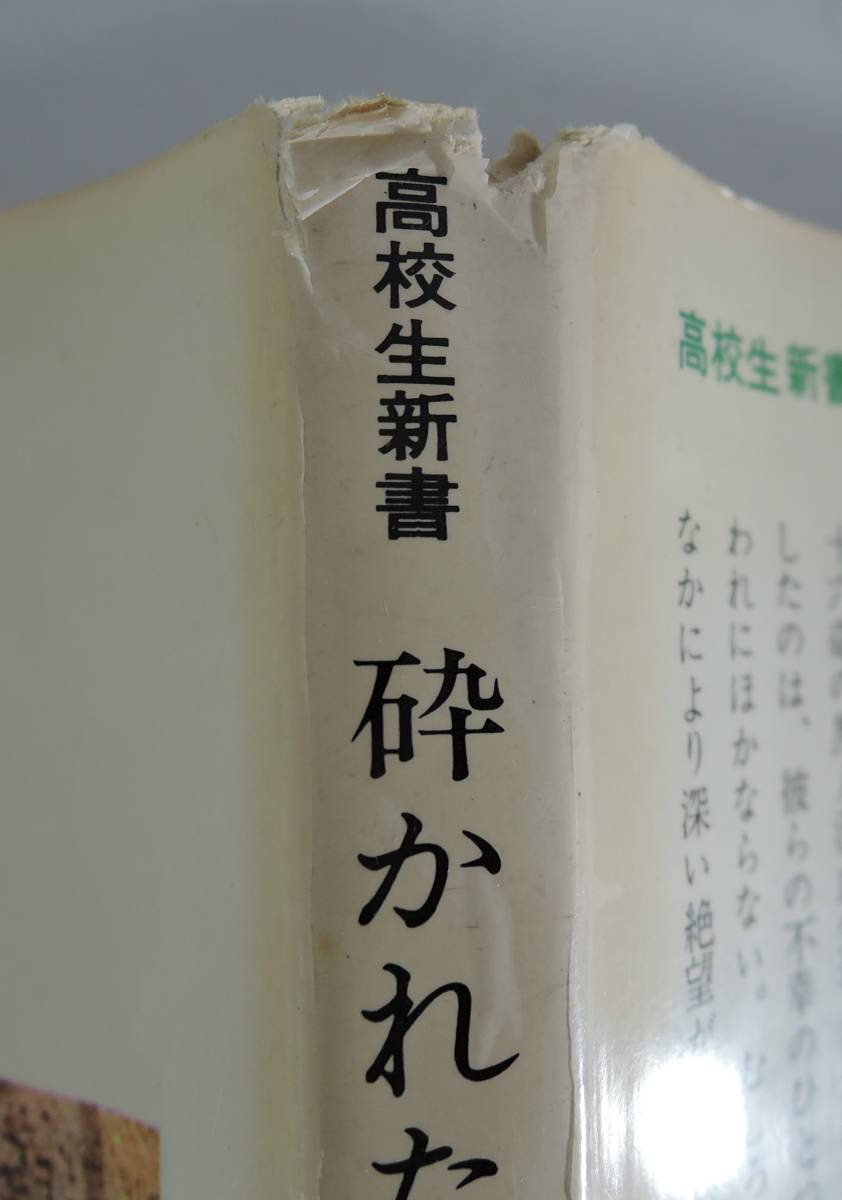 高校生新書
砕かれた
高校生新書
したのは、彼らの不幸のひとつ
われにほかならない。むしろ
なかにより深い絶望が